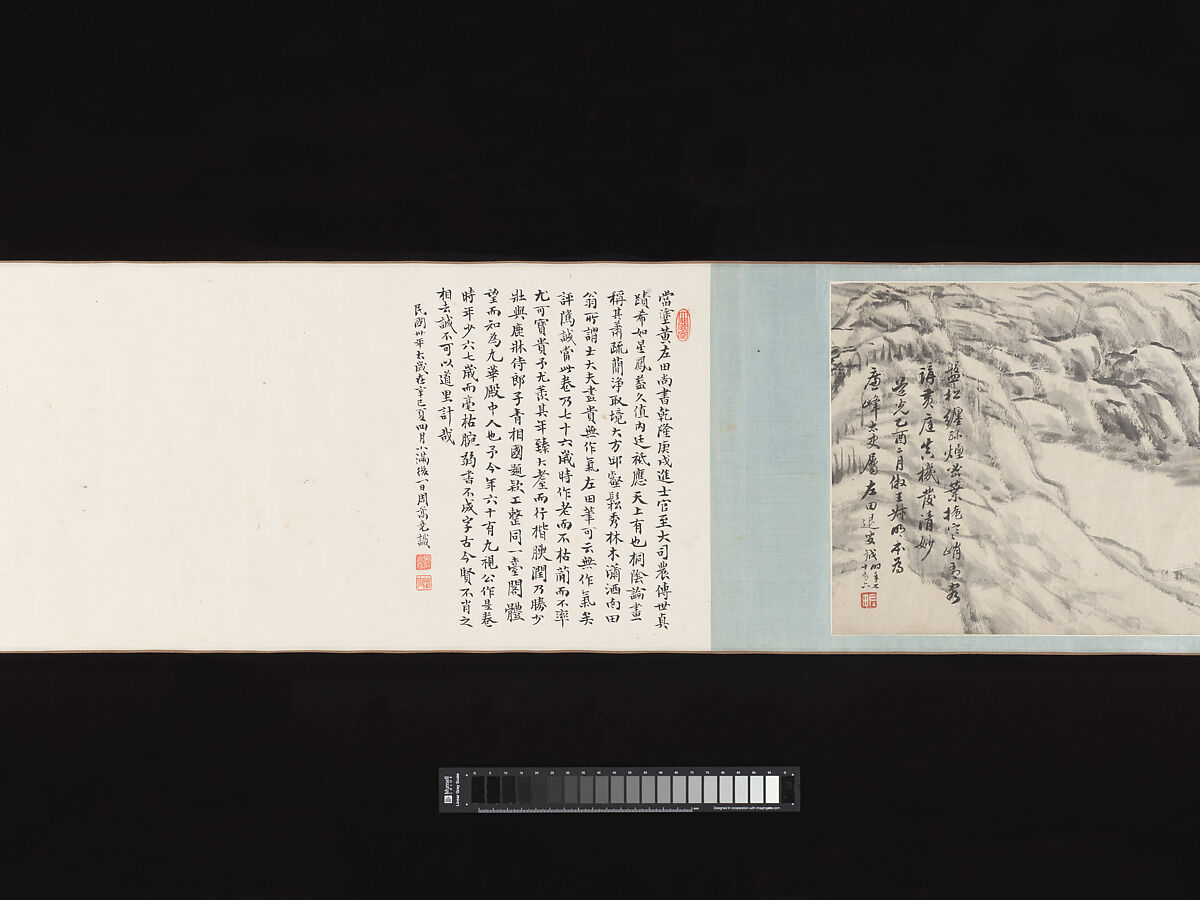 盤松纏
硃黃庭生機發清妙
道光乙酉二月倣王叔明本為
太史屬左田退叟誠時年七
十有六
當塗黃左田尚書乾隆庚戌進士官至大司農傳世真
蹟希如星鳳蓋久值內廷祗應天上有也桐陰論畫
稱其蕭疏蘭淨取境大方邱壑鬆秀林木瀟洒南田
翁所謂士大夫畫貴無作氣左田筆可云無作氣矣
評隲誠當此卷乃七十六歲時作老而不枯蕑而不率
尤可寶貴予尤羨其年臻大耋而行楷腴潤乃勝少
壯與鹿牀侍郎子青相國題款工整同一臺閣體
望而知為九華殿中人也予今年六十有九視公作是卷
時年少六七歲而毫枯腕弱書不成字古今賢不肖之
相去誠不可以道里計哉
民國卅年太歲在辛巳夏四月小滿後一日周高克識
Munsell
Linear Gray Scale
Designed in cooperation with imagingetc.com